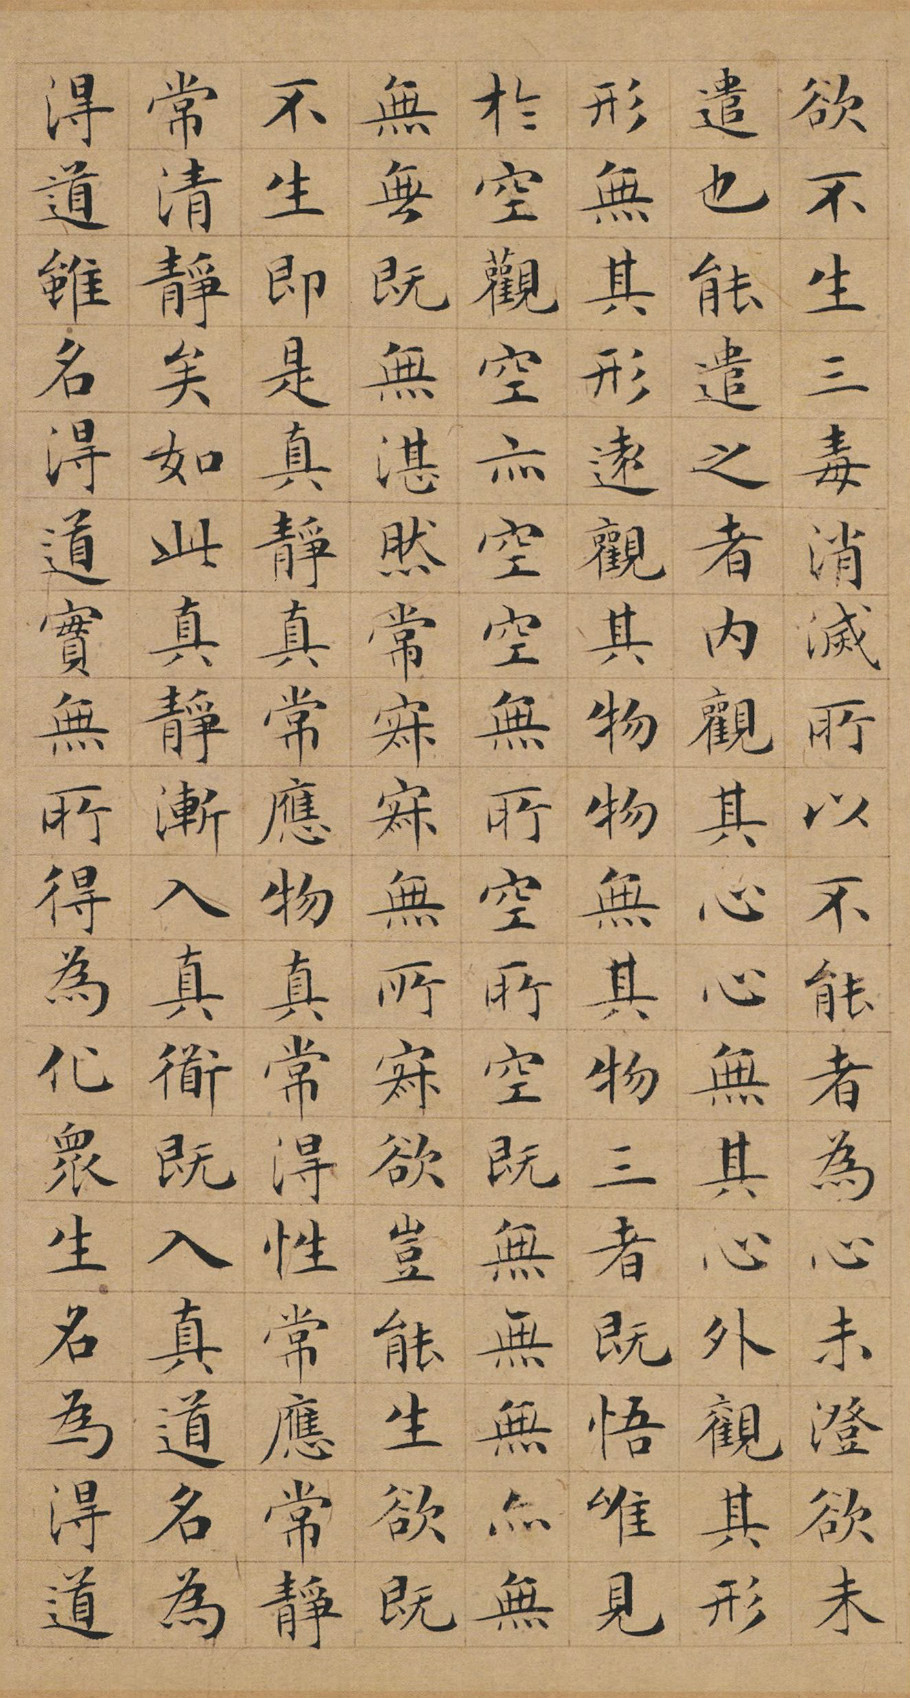 欲不生三毒消滅所以不能者為心未澄欲未
遣也能遣之者内觀其心心無其心外觀其形
形無其形遠觀其物物無其物三者既悟唯見
於空觀空亦空空無所空所空既無無無亦無
無無既無湛然常寂寂無所寂欲豈能生欲既
不生即是真静真常應物真常得性常應常静
常清静矣如此真静漸入真衜既入真道名為
得道雖名得道實無所得為化眾生名為得道